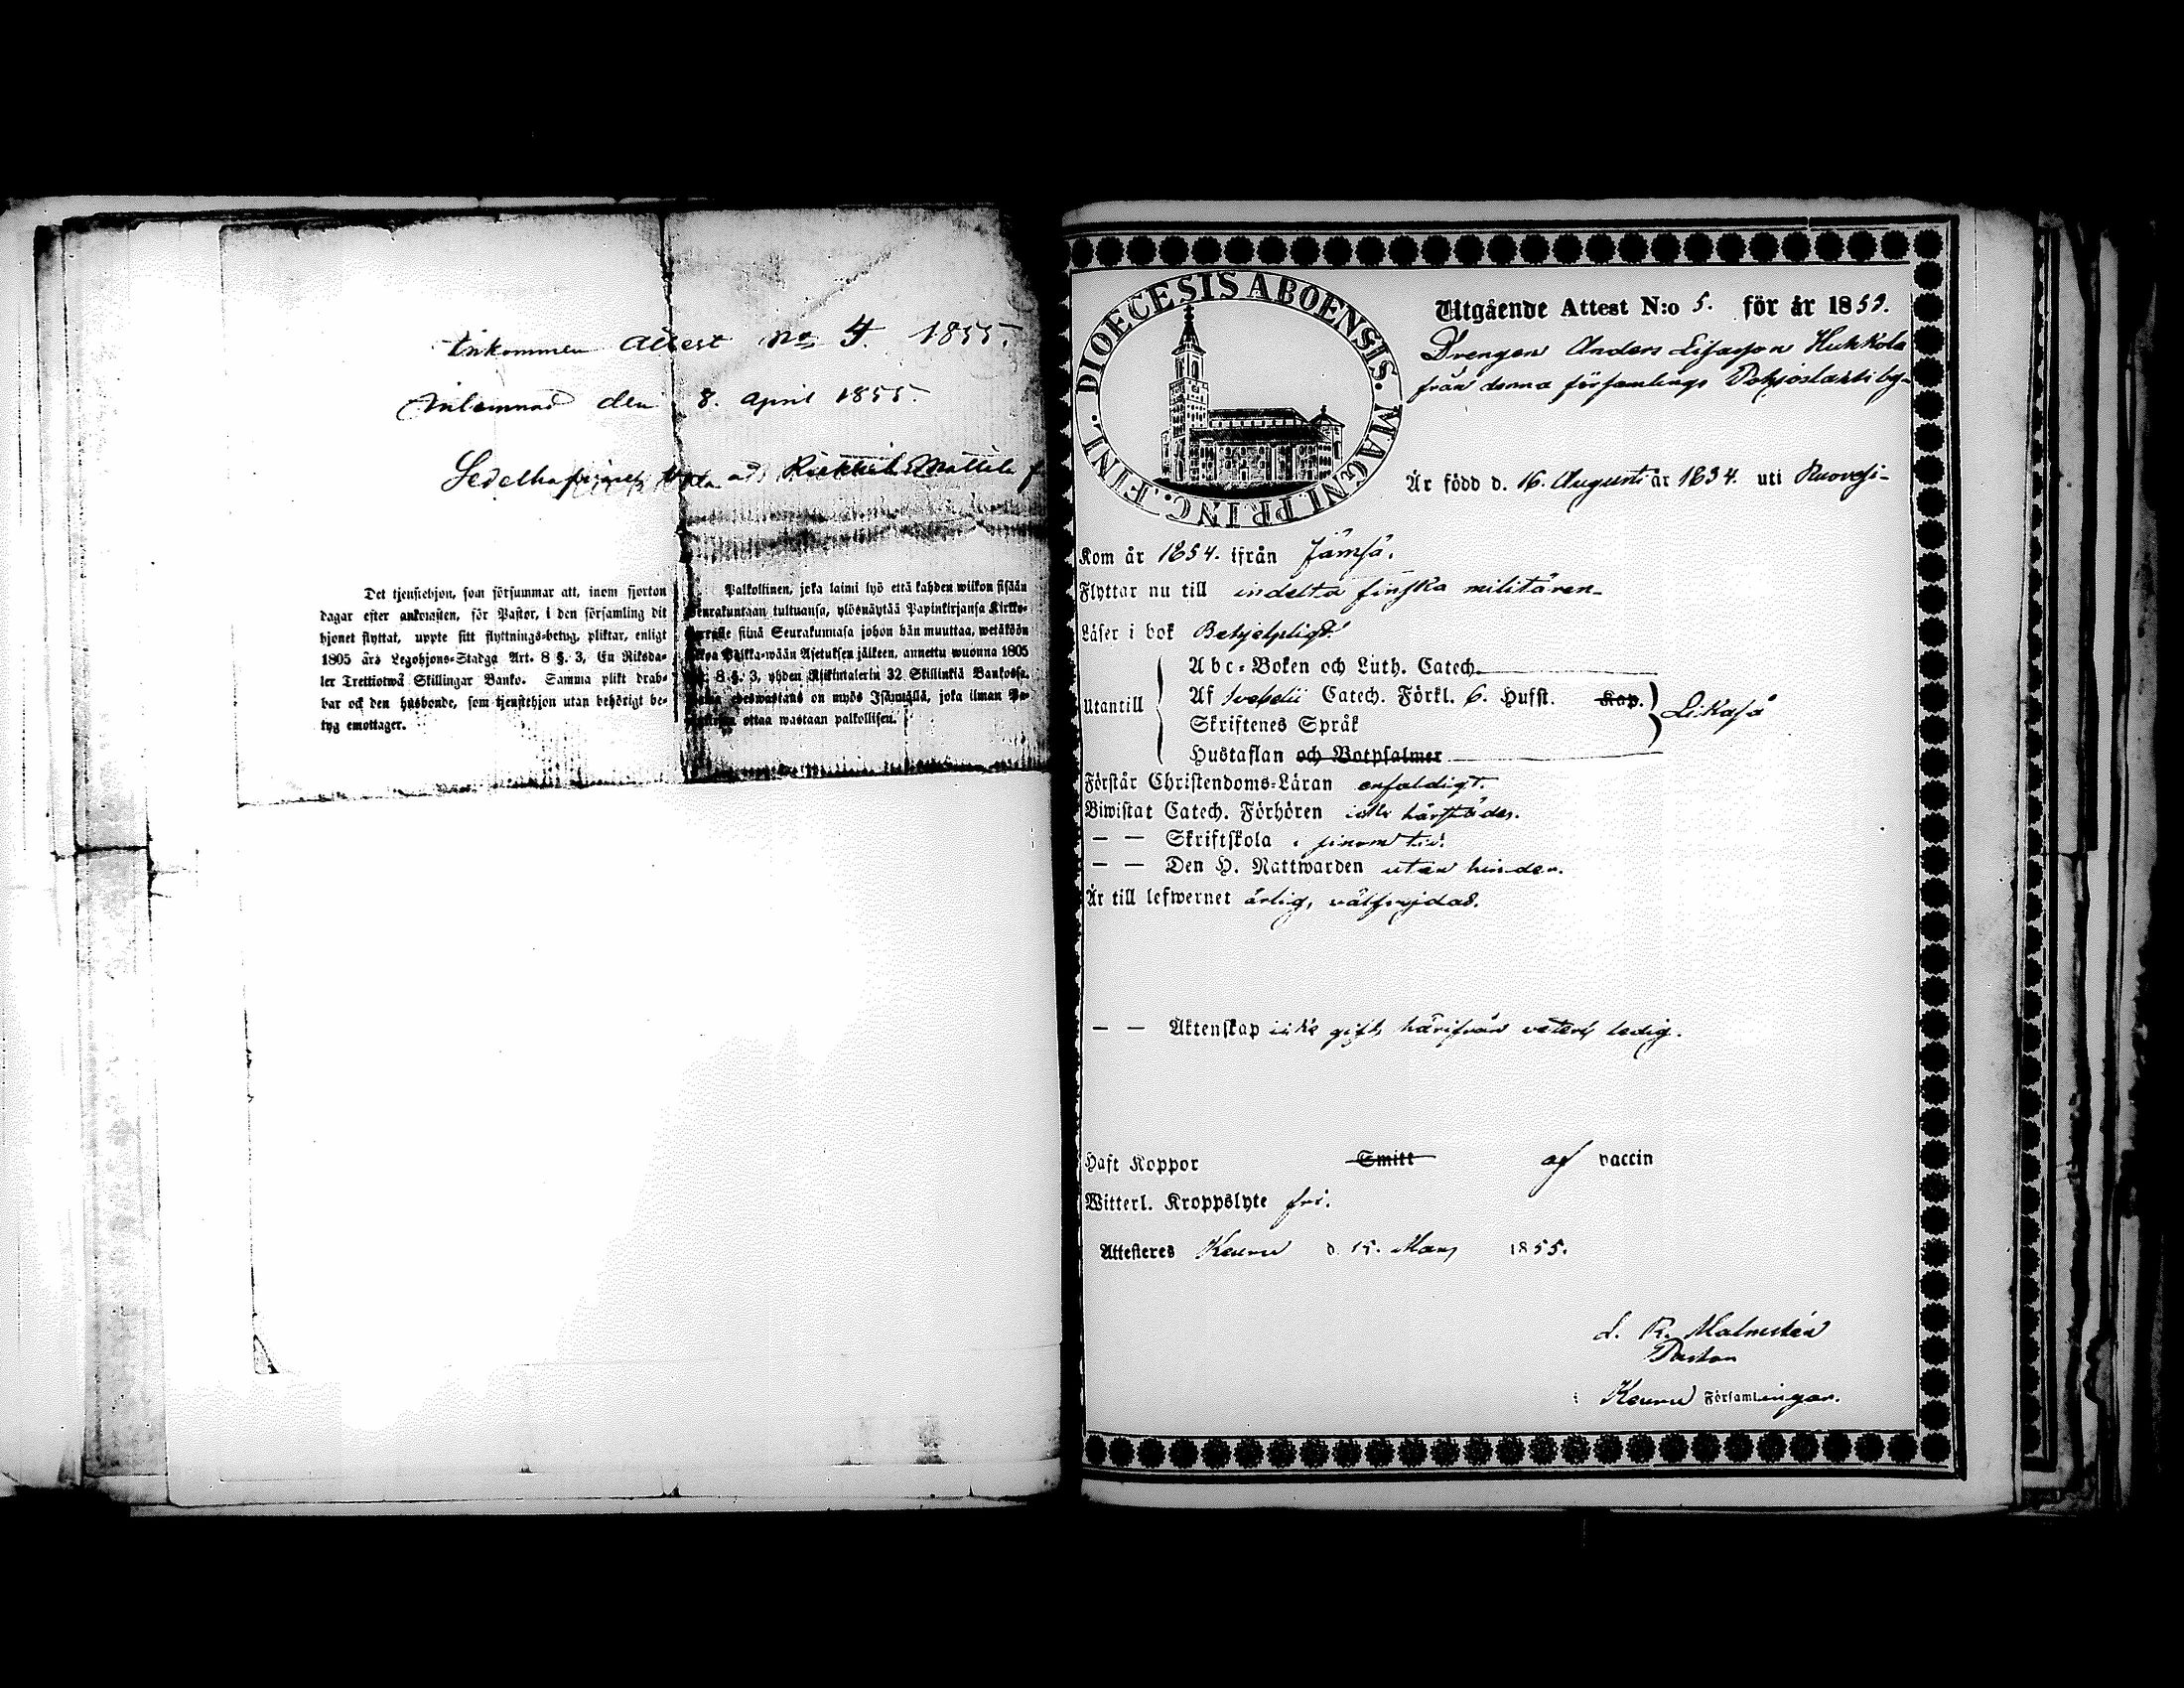 Inkommen attest No 4. 1855.
Inlemnad den 8. April 1855.
Sedelhafvaren
Det tjenstehjon, som försummar att, inom fjorton
dagar efter ankomsten, för Pastor, i den församling dit
hjonet flyttat, uppte sitt flyttnings-betyg, pliktar, enligt
1805 års Legohjons-Stadga Art. 8 §. 3, En Riksda-
ler Trettiotwå Skillingar Banko. Samma plikt drab-
bar ock den husbonde, som tjenstehjon utan behörigt be-
tyg emottager.
Palkollinen, joka laimi lyö että kahden wiikon sisään
Seurakuntaan tultuansa, ylösnäytää Papinkirjansa Kirkko-
herralle siinä Seurakunnasa johon hän muuttaa, wetäköön
Palkka-wään Asetuksen jälkeen, annettu wuonna 1805
8 §. 3, yhden Riikintalerin 32 Skillinkiä Bankossa.
edeswastans on myös Isännällä, joka ilman
ottaa wastaan palkollisen.
DIOECESIS ABOENSIS. MAGNI PRINC. FINL.
Utgående Attest N:o 5. för år 1855.
Drengen Anders Lisasson Hukkola
från denna församlings Pohjoslaxti by-
Är född d. 16. Augusti år 1834. uti Ruovesi-
Kom år 1854. ifrån Jämsä.
Flyttar nu till indelta finska militären-
Läser i bok Behjelpligt
Utantill
Abc-Boken och Luth. Catech.
Af Svebelii Catech. Förkl. 6. Hufst. Kap. Likaså
Skriftenes Språk
Hustaflan och Botpsalmer
Förstår Christendoms-Läran enfaldigt.
Biwistat Catech. Förhören icke härstädes.
— — Skriftskola i sinom tid.
— — Den H. Nattwarden utan hinder.
Är till lefwernet ärlig, välfrejdad.
— — Äktenskap icke gift, härifrån veterl. ledig.
Haft Koppor Smitt af vaccin
Witterl. Kroppslyte fri.
Attesteras Keuru d. 15. Mars 1855.
Malmstén
Pastor
i Keuru Församlingar.